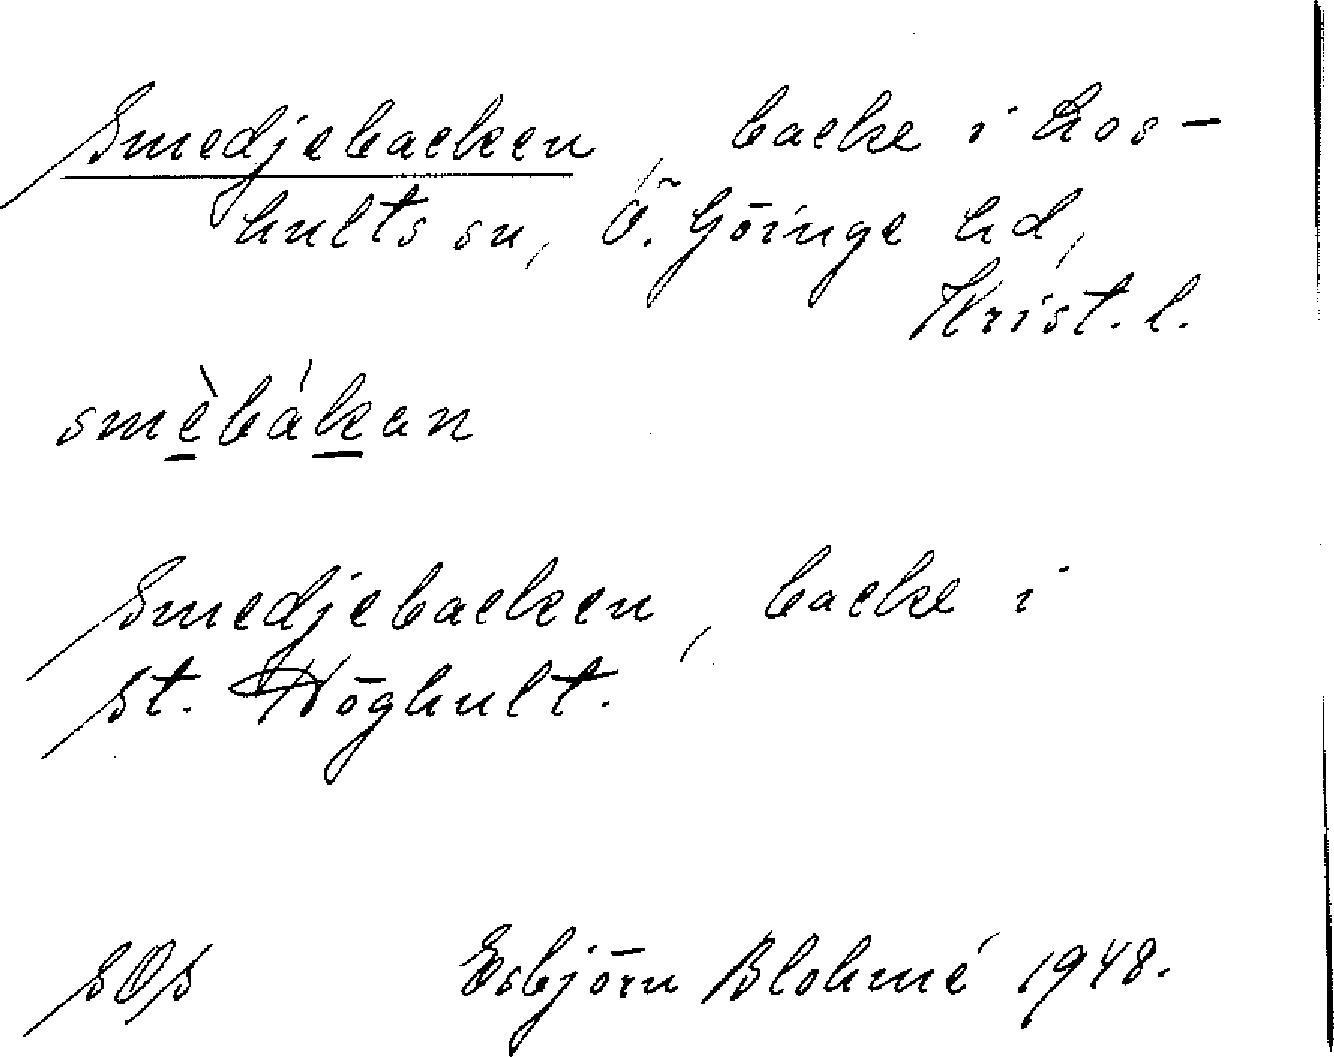 Smedjebacken, backe i Los-
hults sn, Ö. Göinge hd,
Krist. l.
smèbákan
Smedjebacken, backe i
St. Höghult.
SOS Esbjörn Blohmé 1948.